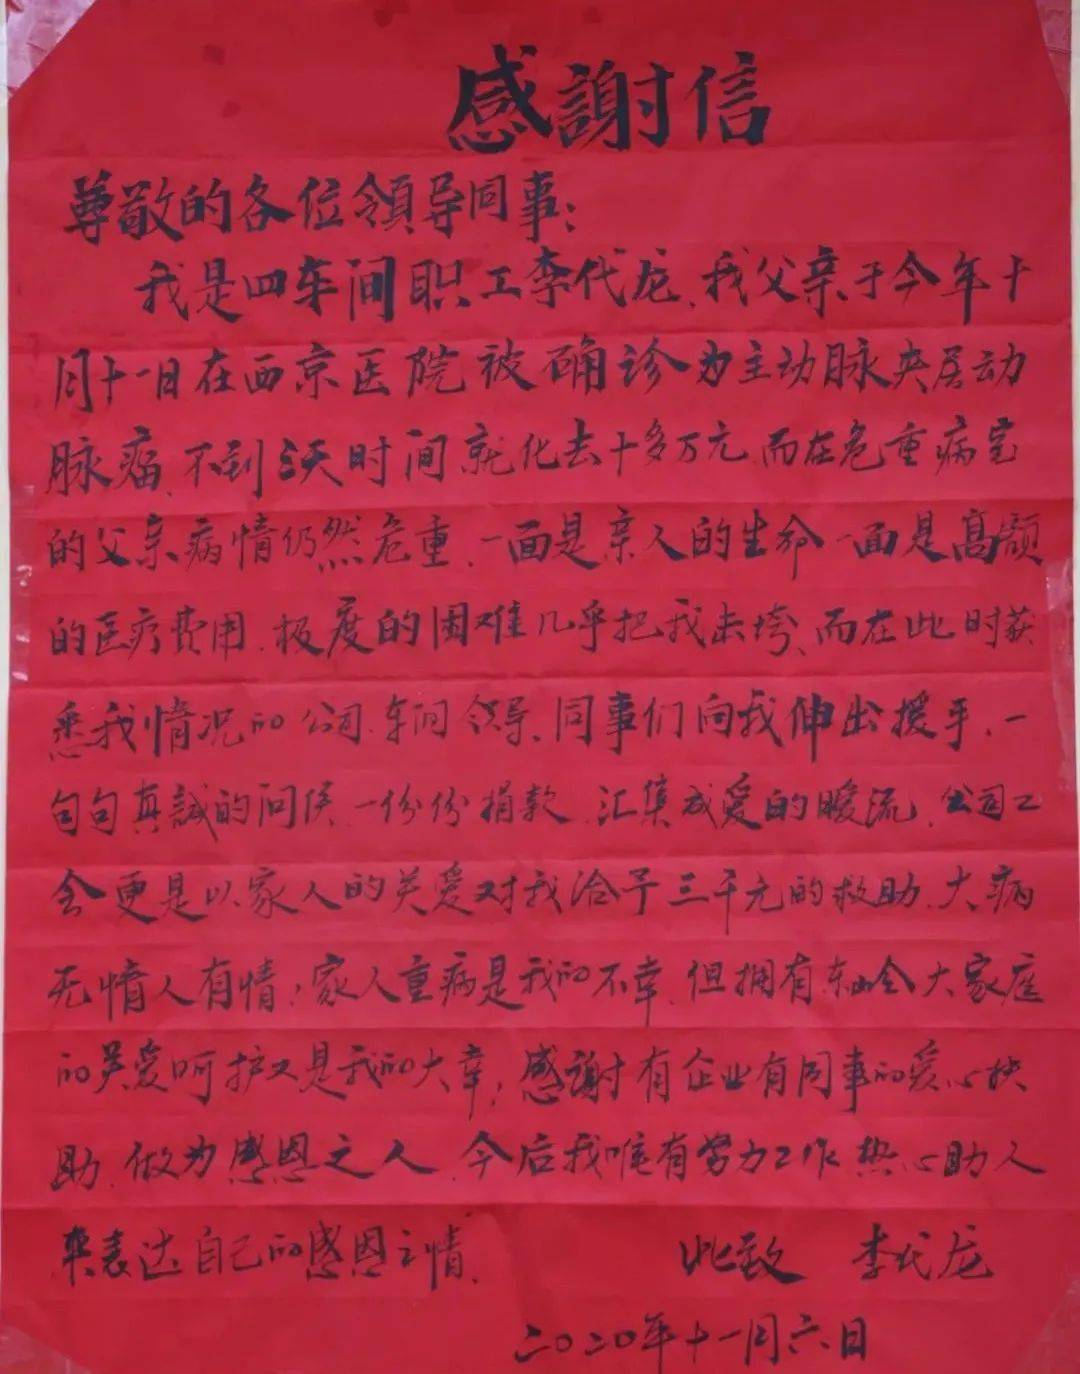 感謝信
尊敬的各位領导同事：
我是四车间职工李代龙、我父亲于今年十
月十一日在西京医院被确诊为主动脉夹层动
脉瘤、不到 天时间就化去十多万元、而在危重病室
的父亲病情仍然危重、一面是亲人的生命一面是高额
的医疗费用、极度的困难几乎把我击垮、而在此时获
悉我情况的公司、车间领导、同事们向我伸出援手、一
句句真誠的问侯、一份份捐款、汇集成爱的暖流、公司工
会更是以家人的关爱对我给予三千元的救助、大病
无情人有情，家人重病是我的不幸、但拥有东岭大家庭
的关爱呵护又是我的大幸，感謝有企业有同事的爱心扶
助、做为感恩之人、今后我唯有努力工作热心助人
来表达自己的感恩之情、
此致 李代龙
二〇二〇年十一月六日